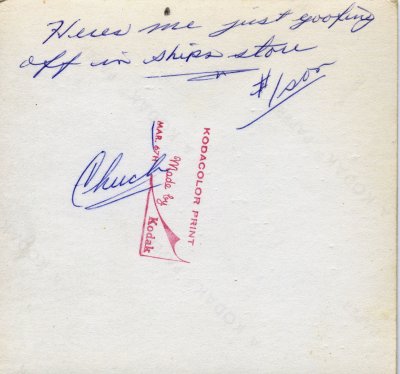 Heres me just goofing
off in ships store
#1 son
Chuck
KODACOLOR PRINT
Made by
Kodak